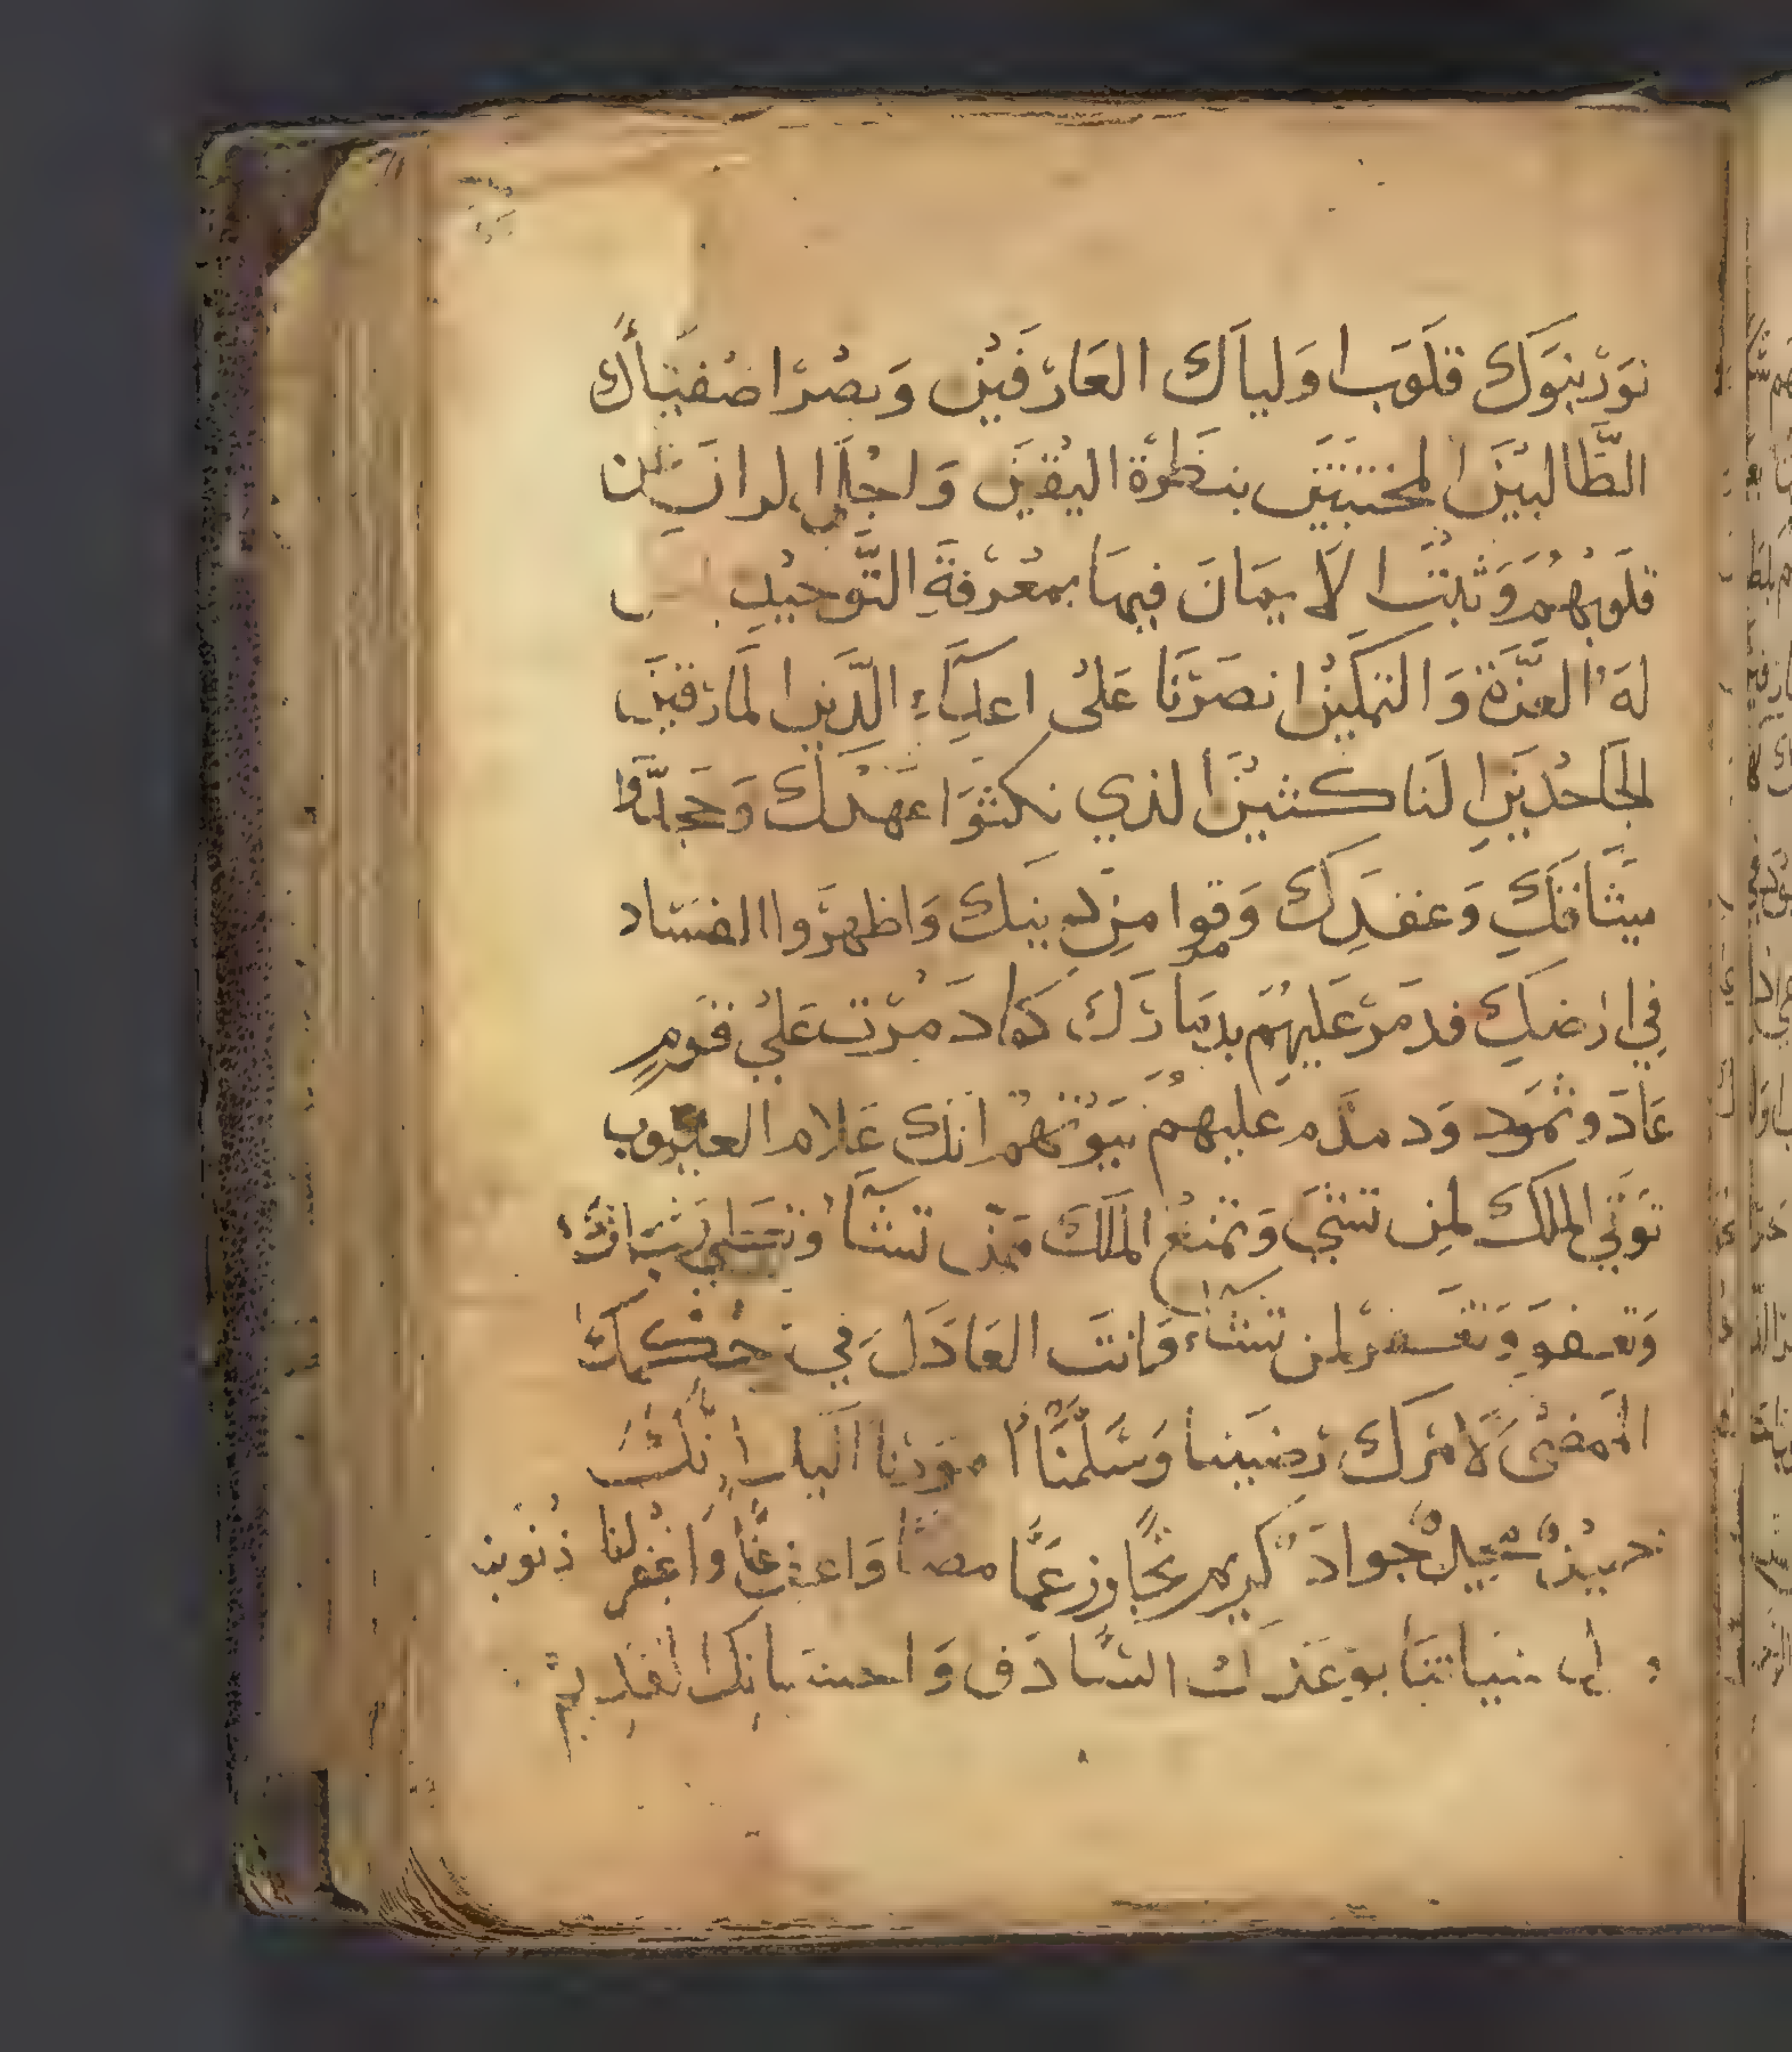 نوربنوك قلوب اولياك العارفين وبصر اصفياك
الطالبين المخبتين بنظرة اليقين واجلي الران من
قلوبهم وثبت الايمان فيها بمعرفة التوحيد
له العزة والتمكين انصرنا على اعداء الدين المارقين
الجاحدين الناكثين الذي نكثوا عهدك وجحدوا
ميثاقك وعقدك ومرقوا من دينك واظهروا الفساد
في ارضك فدمر عليهم بدمارك كما دمرت علي قوم
عاد وثمود ودمدم عليهم بيوتهم انك علام العيوب
توتي الملك لمن تشي وتمنع الملك ممن تشاء
وتعفو وتغفر لمن تشاء وانت العادل في حكمك
الممضى لامرك رضينا وسلمنا امورنا اليك انك
جواد كريم تجاوز عما مضا واعف عنا واغفر لنا ذنوبنا
بوعدك الصادق واحسانك